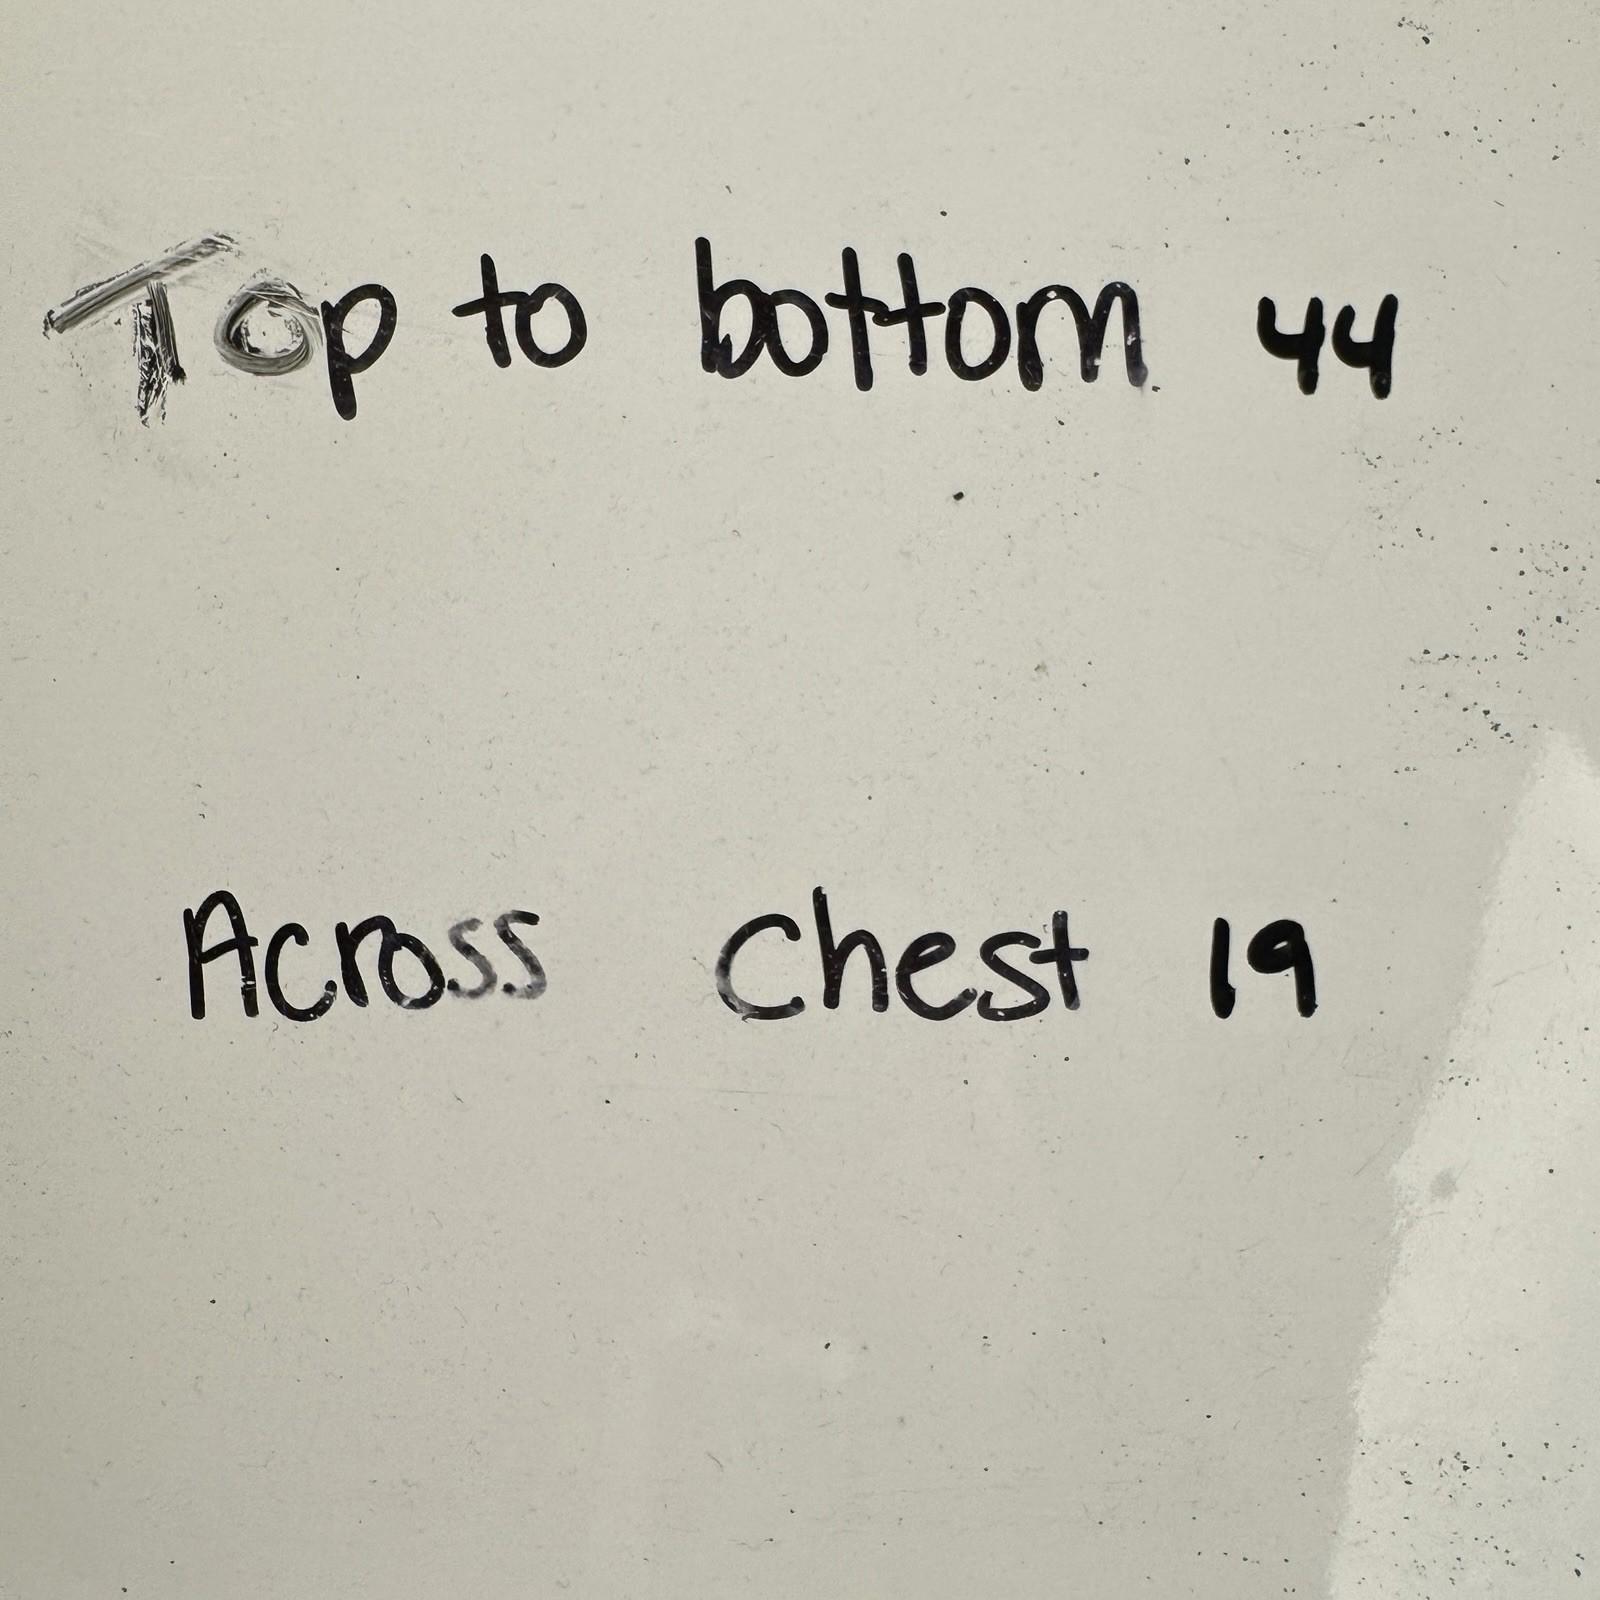 Top to bottom 44
Across Chest 19